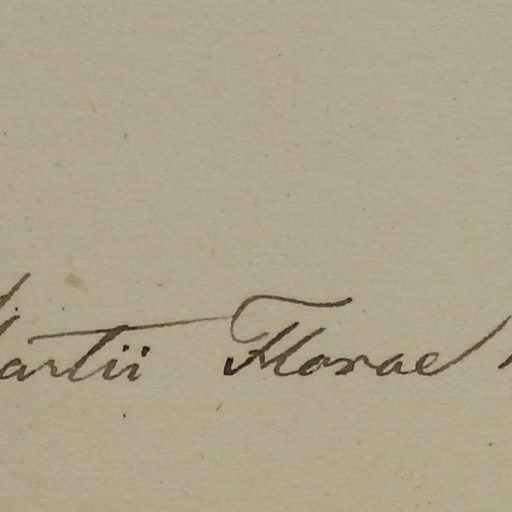 artii Florae